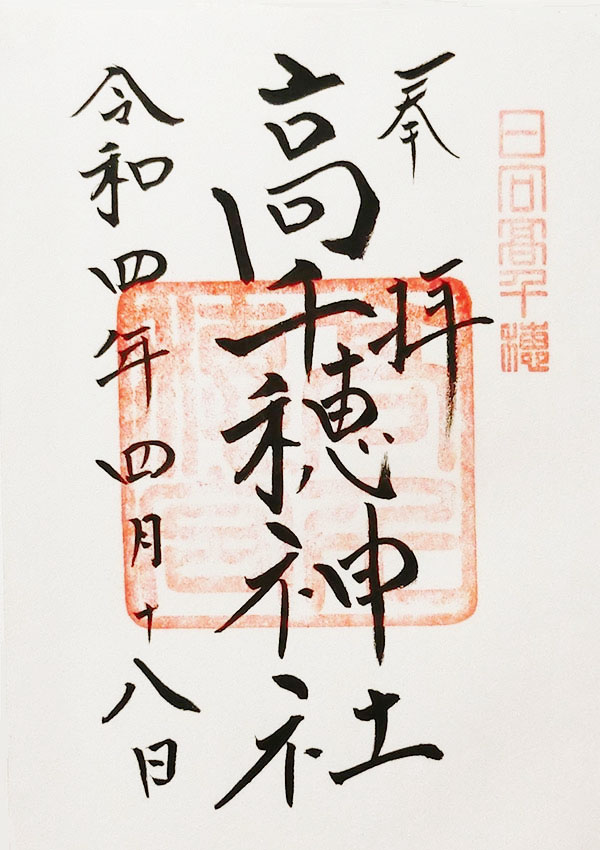 日向高千穂
奉拝
高千穂神社
令和四年四月十八日